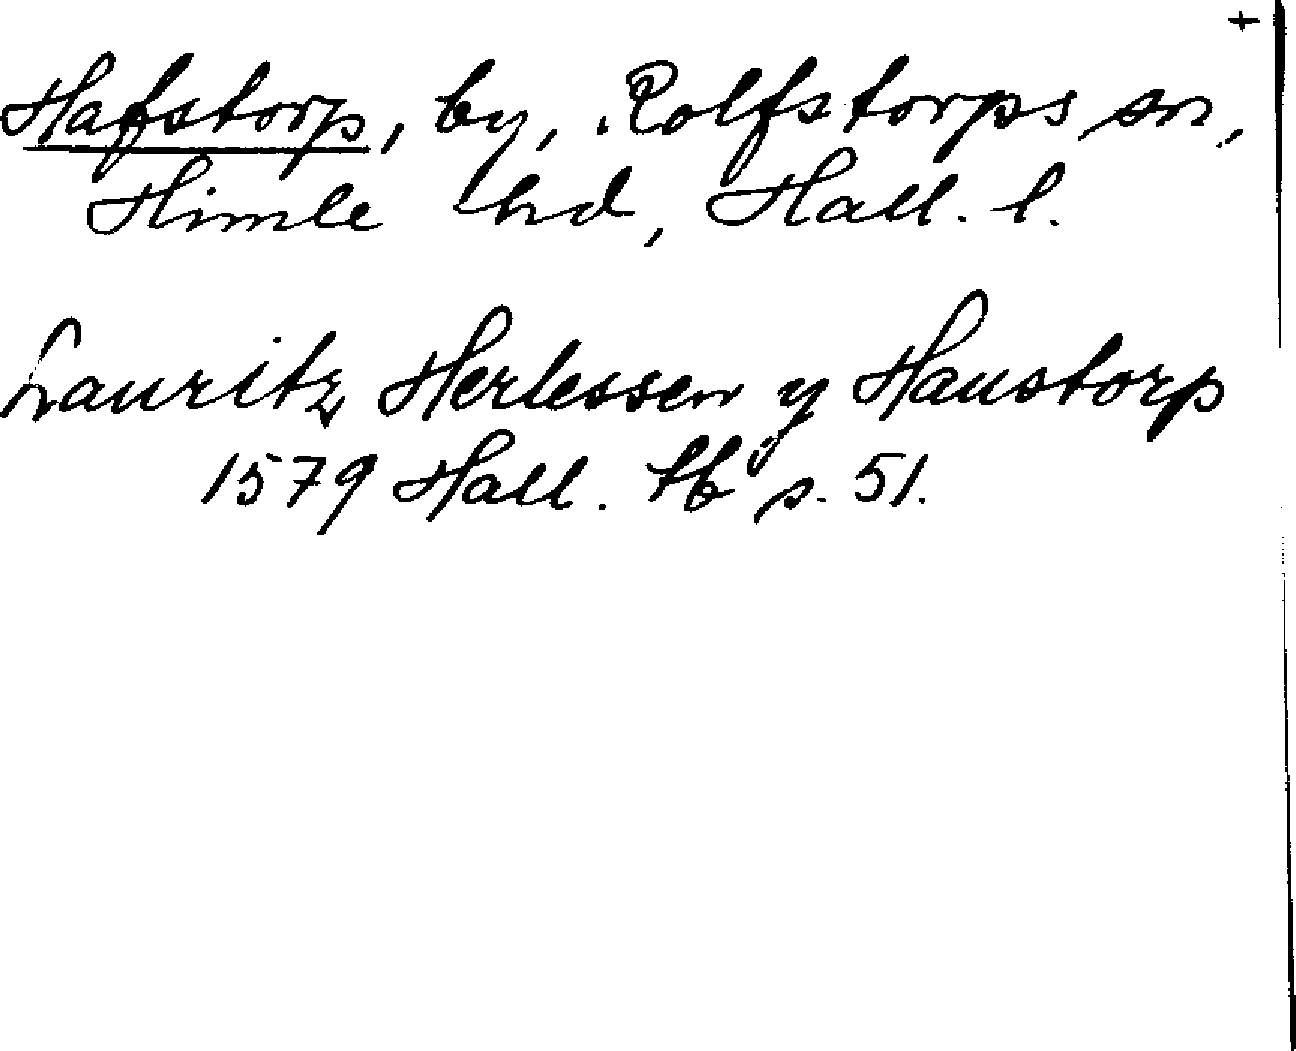 +
Hafstorp, by, Rolfstorps sn,
Himle hd, Hall. l.
Lauritz Herlessen y Haustorp
1579 Hall. tb s. 51.